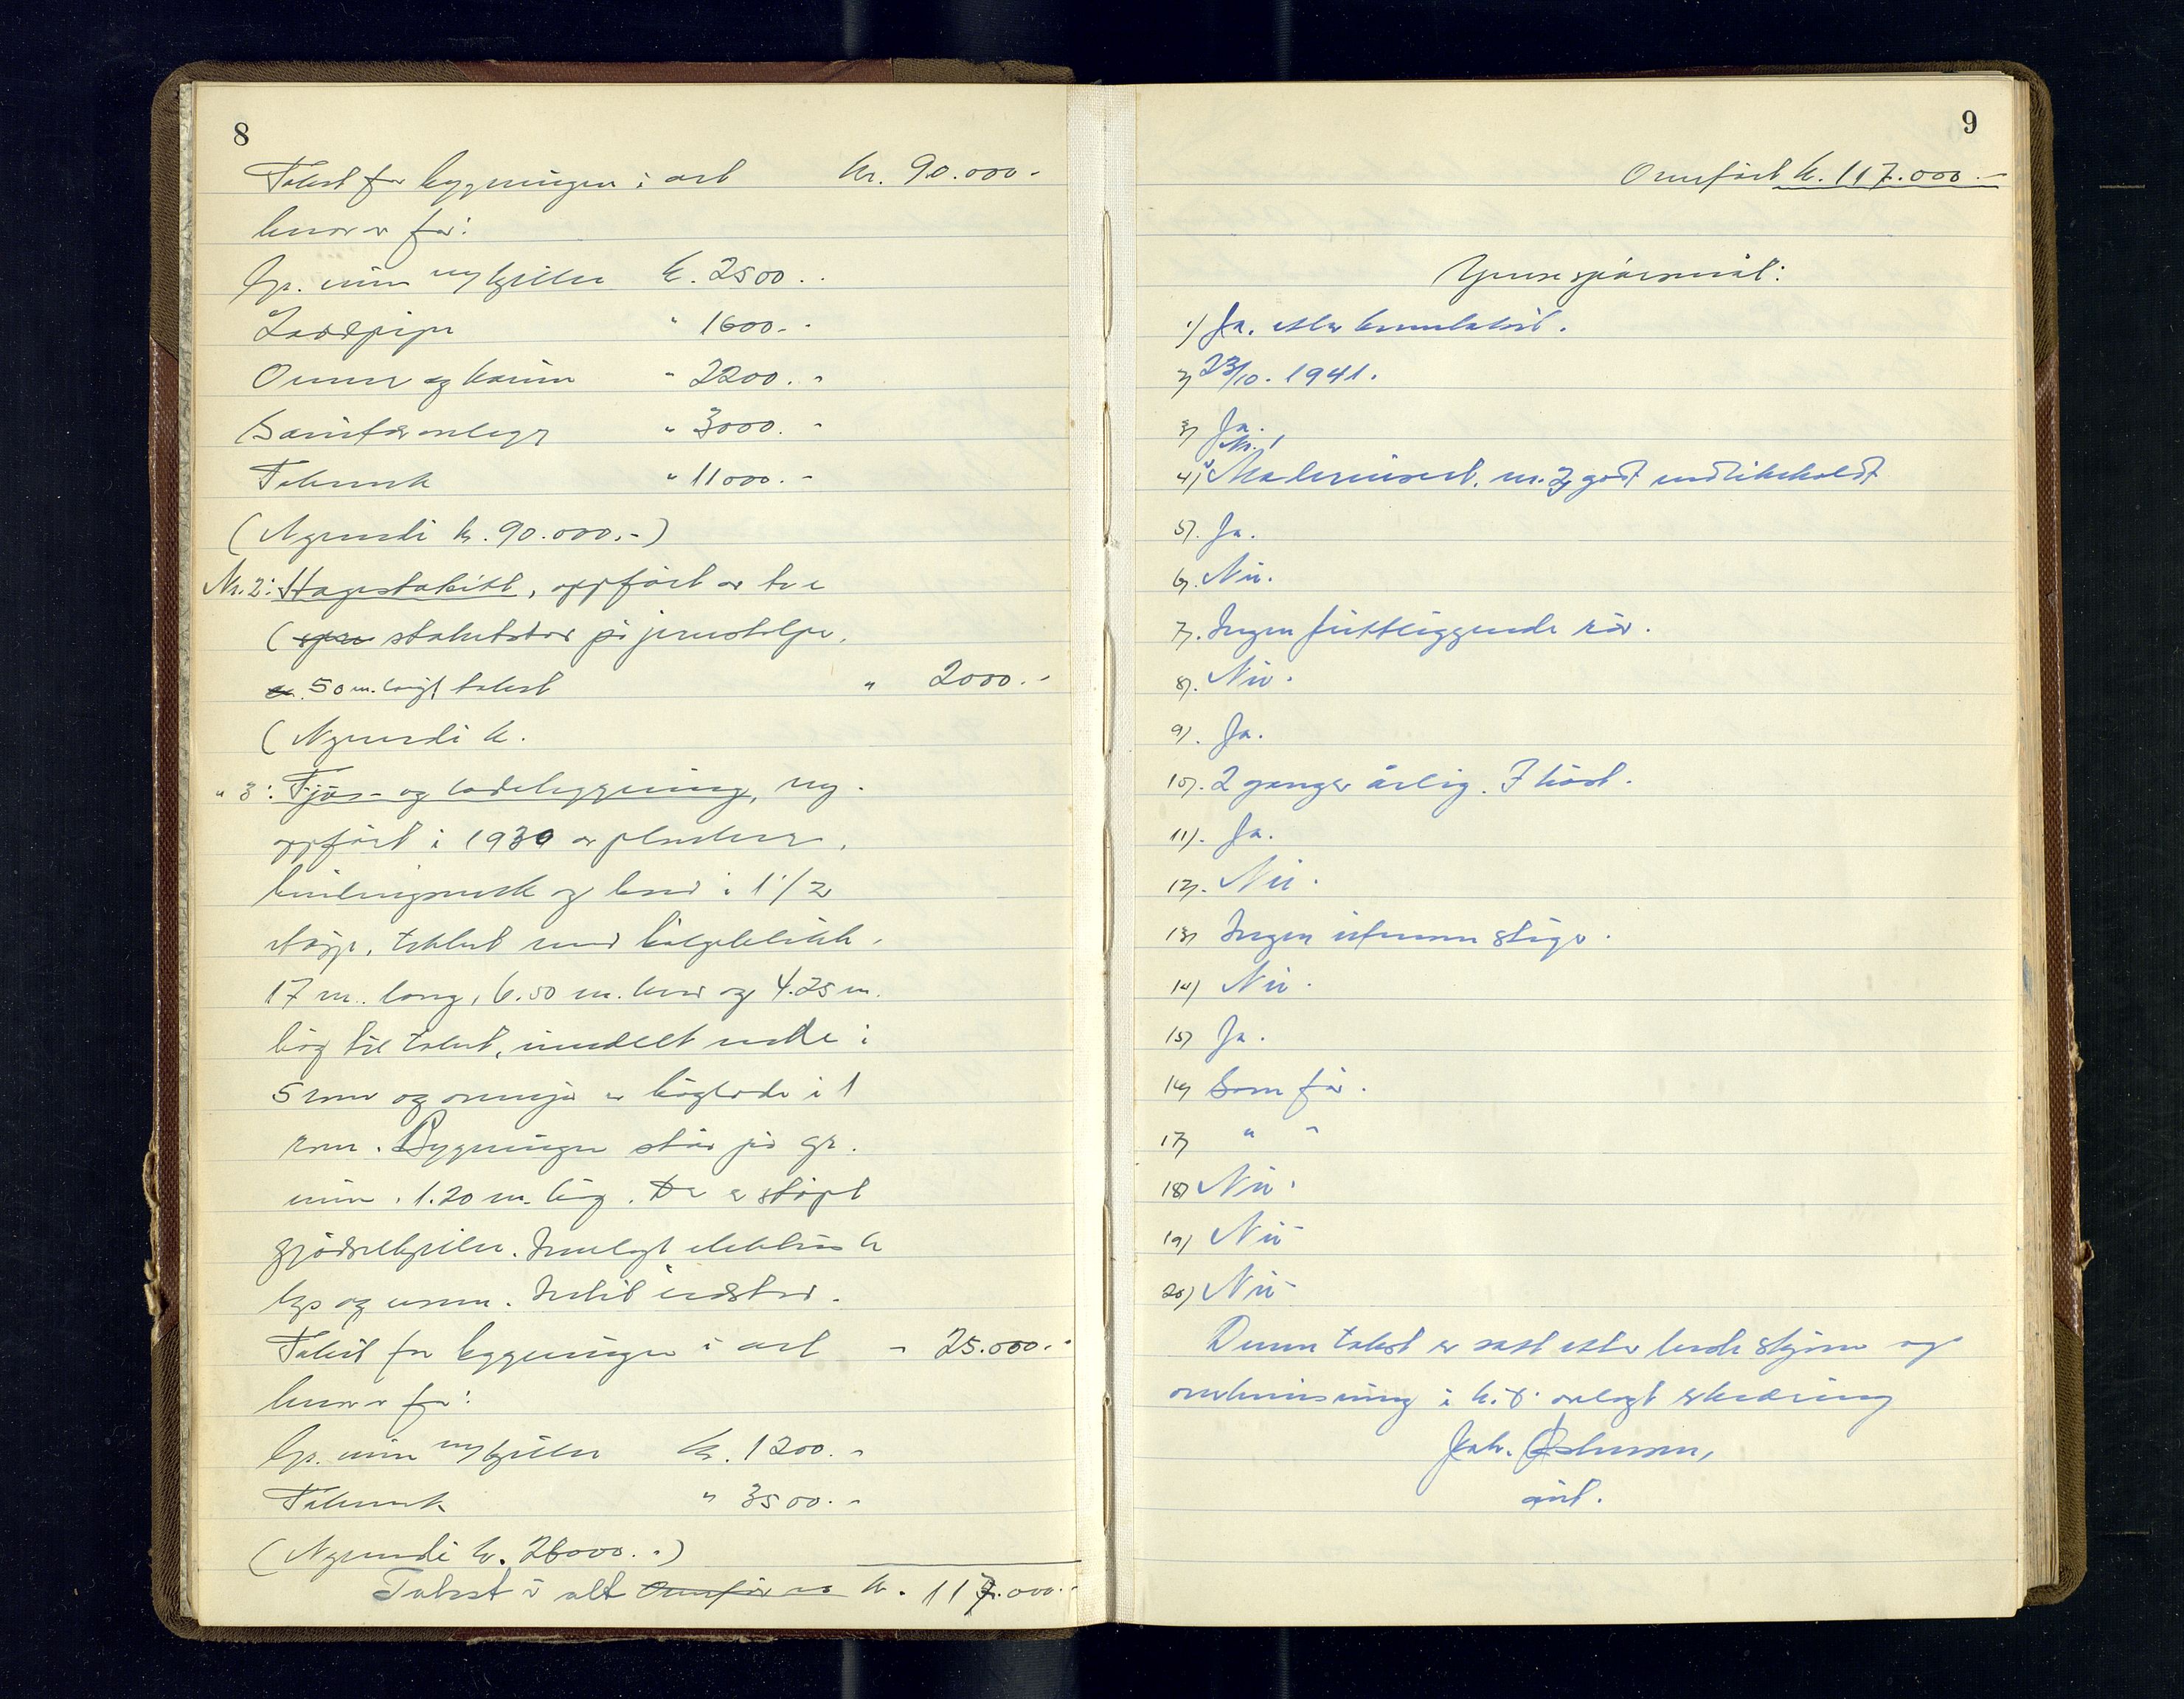 8
Takst for bygningen i alt kr. 90.000.-
hvorav for:
Gr. mur m/kjeller kr. 2500.-
Ildspipe " 1600.-
Ovner og kamin " 2200.-
Sanitæranlegg " 3000.-
Takverk " 11000.-
(Nyverdi kr. 90.000.-)
Nr. 2: Hagestakitt, oppført av tre
stakitstav på jernstolper,
50 m. langt takst " 2000.-
(Nyverdi kr.
" 3: Fjøs- og ladebygning, ny-
oppført i 1930 av planker,
bindingsverk og bord i 1 1/2
etasje, tekket med bølgeblikk.
17 m. lang, 6.50 m. bred og 4.25 m.
høg til taket, inndelt nede i
5 rom og ovenpå er høylade i 1
rom. Bygningen står på gr.
mur. 1.20 m. høg. Der er støpt
gjødselkjeller. Innlagt elektrisk
lys og vann. Intet ildsted.
Takst for bygningen i alt - 25.000.-
hvorav for:
Gr. mur m/kjeller kr. 1200.-
Takverk " 3500.-
(Nyverdi kr. 26000.-)
Takst i alt kr. 117.000.-
9
Overført kr. 117.000.-
Yense spørsmål:
1) Ja. etter
2) 23/10. 1941.
3) Ja.
Nr. 1
4) nr. 3 godt vedlikeholdt
5). Ja.
6. Nei.
7. Ingen frittliggende rør.
8). Nei.
9). Ja.
10). 2 ganger årlig. I høst.
11). Ja.
12). Nei.
13) Ingen utvenn stige.
14) Nei.
15) Ja.
16) Som før.
17) " "
18) Nei.
19) Nei
20) Nei
Denne takst er satt etter beste skjønn og
overbevisning i h.t. avlagt erklæring
Joh. Johnsen,